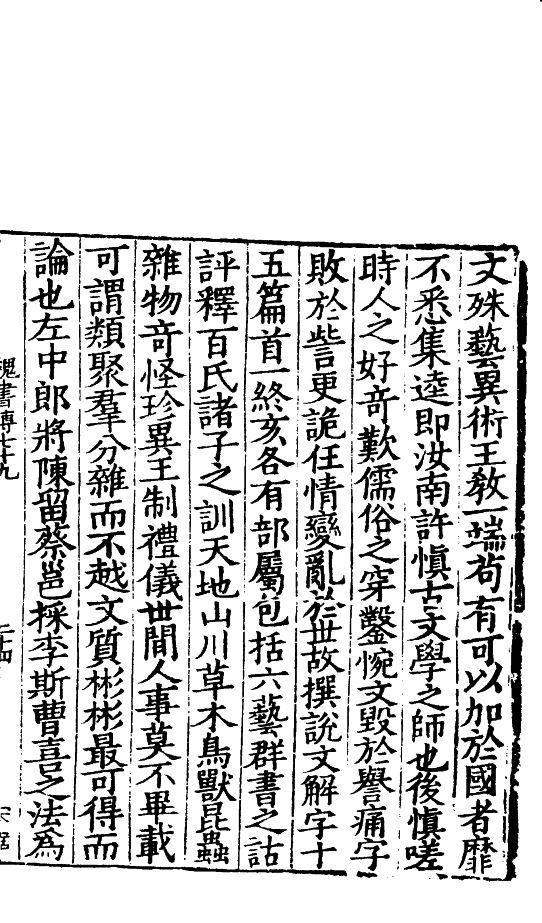 文殊藝異術王敎一端苟有可以加於國者靡
不悉集逵即汝南許慎古文學之師也後慎嗟
時人之好奇歎儒俗之穿鑿惋文毀於譽痛字
敗於訾更詭任情變亂於世故撰說文解字十
五篇首一終亥各有部屬包括六藝群書之詁
評釋百氏諸子之訓天地山川草木鳥獸昆蟲
雜物奇怪珍異王制禮儀世間人事莫不畢載
可謂類聚羣分雜而不越文質彬彬最可得而
論也左中郎將陳留蔡邕採李斯曹喜之法爲
魏書傳七十九
二十四